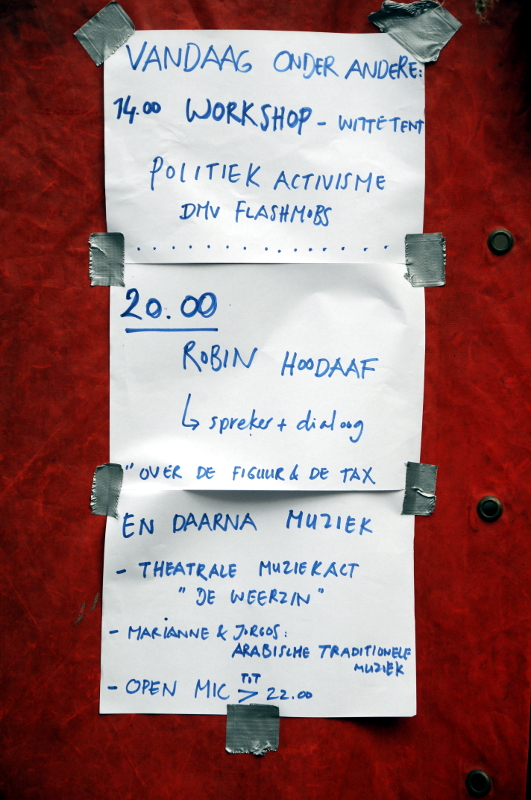 VANDAAG ONDER ANDERE:
14.00 WORKSHOP - WITTE TENT
POLITIEK ACTIVISME
DMV FLASHMOBS
..............
20.00
ROBIN HOODAAF
↳ spreker + dialoog
"OVER DE FIGUUR & DE TAX
EN DAARNA MUZIEK
- THEATRALE MUZIEKACT
"DE WEERZIN"
- MARIANNE & JORGOS:
ARABISCHE TRADITIONELE
MUZIEK
- OPEN MIC TOT > 22.00